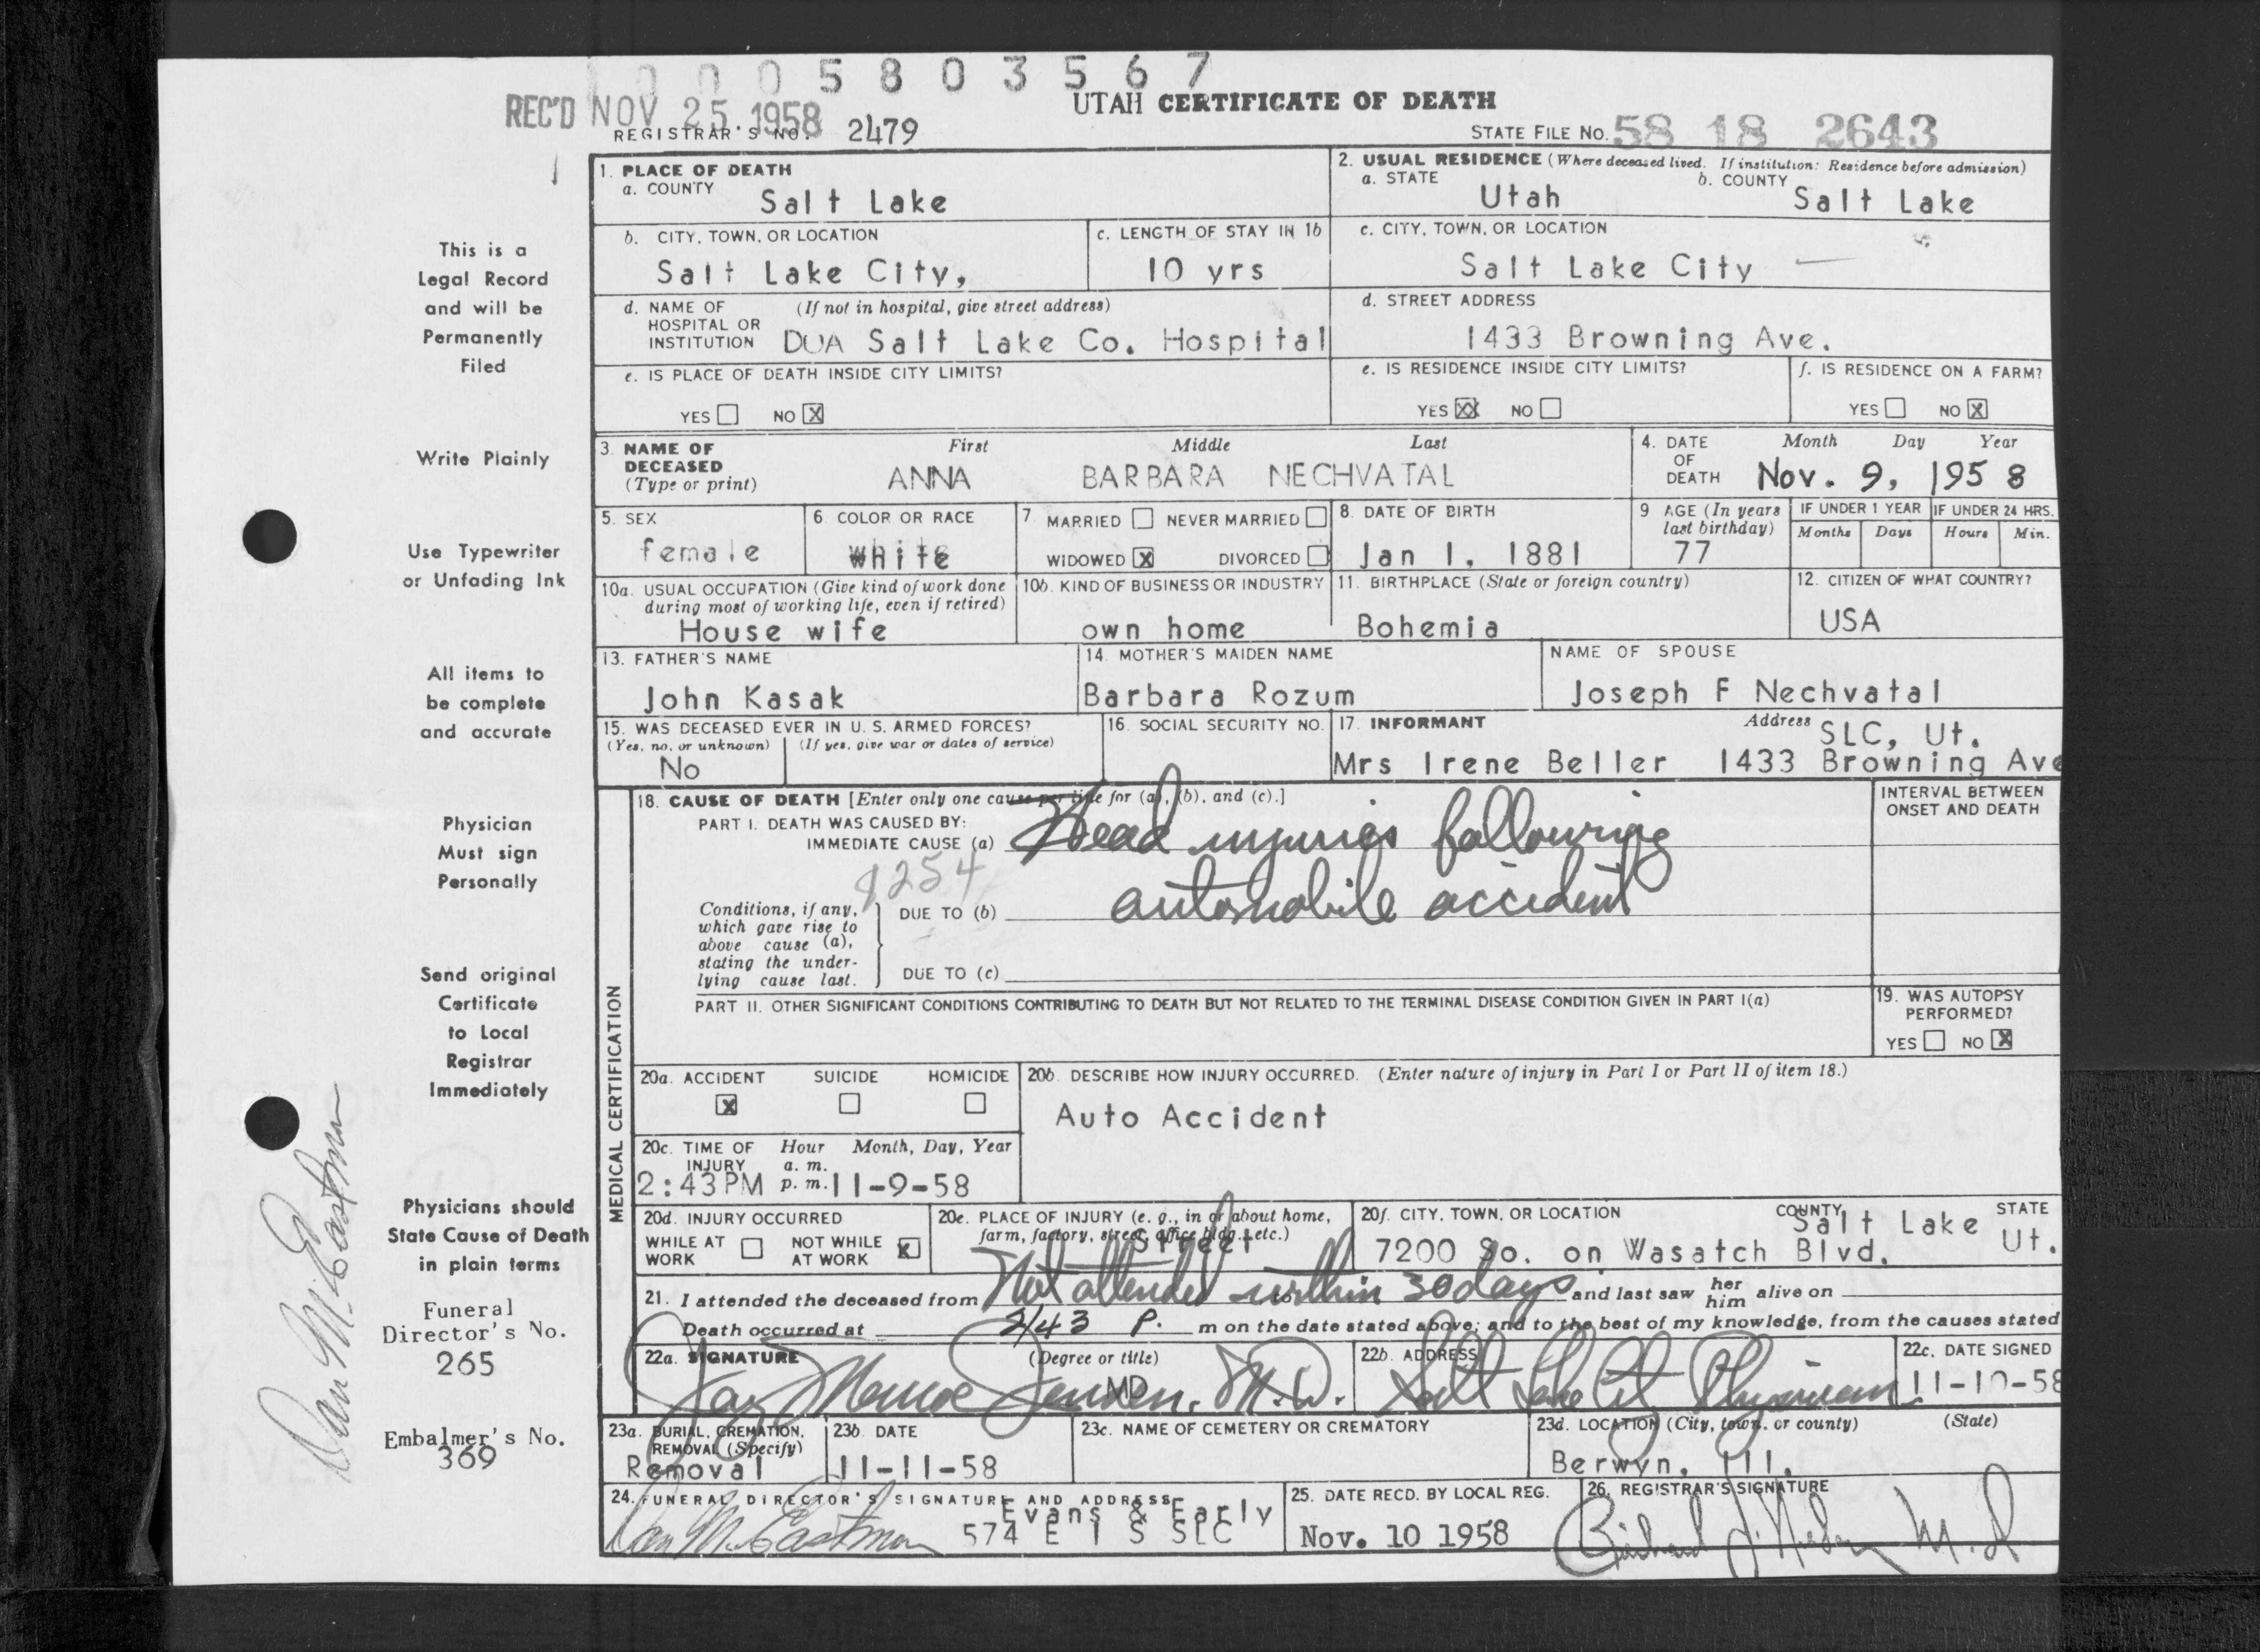 0 0 0 5 8 0 3 5 6 7
REC'D NOV 25 1958
UTAH CERTIFICATE OF DEATH
REGISTRAR'S NO. 2479
STATE FILE NO. 58 18 2643
1. PLACE OF DEATH
a. COUNTY
Salt Lake
2. USUAL RESIDENCE (Where deceased lived. If institution: Residence before admission)
a. STATE
Utah
b. COUNTY
Salt Lake
b. CITY, TOWN, OR LOCATION
Salt Lake City,
c. LENGTH OF STAY IN 1b
10 yrs
c. CITY, TOWN, OR LOCATION
Salt Lake City
d. NAME OF HOSPITAL OR INSTITUTION (If not in hospital, give street address)
DOA Salt Lake Co. Hospital
d. STREET ADDRESS
1433 Browning Ave.
e. IS PLACE OF DEATH INSIDE CITY LIMITS?
YES NO X
e. IS RESIDENCE INSIDE CITY LIMITS?
YES XX NO
f. IS RESIDENCE ON A FARM?
YES NO X
3. NAME OF DECEASED (Type or print)
First Middle Last
ANNA BARBARA NECHVATAL
4. DATE OF DEATH
Month Day Year
Nov. 9, 1958
5. SEX
female
6. COLOR OR RACE
white
7. MARRIED NEVER MARRIED
WIDOWED X DIVORCED
8. DATE OF BIRTH
Jan 1, 1881
9 AGE (In years last birthday)
77
IF UNDER 1 YEAR
Months Days
IF UNDER 24 HRS.
Hours Min.
10a. USUAL OCCUPATION (Give kind of work done during most of working life, even if retired)
House wife
10b. KIND OF BUSINESS OR INDUSTRY
own home
11. BIRTHPLACE (State or foreign country)
Bohemia
12. CITIZEN OF WHAT COUNTRY?
USA
13. FATHER'S NAME
John Kasak
14. MOTHER'S MAIDEN NAME
Barbara Rozum
NAME OF SPOUSE
Joseph F Nechvatal
15. WAS DECEASED EVER IN U. S. ARMED FORCES?
(Yes, no, or unknown) (If yes, give war or dates of service)
No
16. SOCIAL SECURITY NO.
17. INFORMANT Address
SLC, Ut.
Mrs Irene Beller 1433 Browning Ave
MEDICAL CERTIFICATION
18. CAUSE OF DEATH [Enter only one cause per line for (a), (b), and (c).]
INTERVAL BETWEEN ONSET AND DEATH
PART I. DEATH WAS CAUSED BY:
IMMEDIATE CAUSE (a) Head injuries following
8254
Conditions, if any, which gave rise to above cause (a), stating the underlying cause last.
DUE TO (b) automobile accident
DUE TO (c)
PART II. OTHER SIGNIFICANT CONDITIONS CONTRIBUTING TO DEATH BUT NOT RELATED TO THE TERMINAL DISEASE CONDITION GIVEN IN PART I(a)
19. WAS AUTOPSY PERFORMED?
YES NO X
20a. ACCIDENT SUICIDE HOMICIDE
X
20b. DESCRIBE HOW INJURY OCCURRED. (Enter nature of injury in Part I or Part II of item 18.)
Auto Accident
20c. TIME OF INJURY Hour Month, Day, Year
a. m.
2:43PM p. m. 11-9-58
20d. INJURY OCCURRED
WHILE AT WORK NOT WHILE AT WORK X
20e. PLACE OF INJURY (e. g., in or about home, farm, factory, street, office bldg., etc.)
Street
20f. CITY, TOWN, OR LOCATION COUNTY STATE
7200 So. on Wasatch Blvd. Salt Lake Ut.
21. I attended the deceased from Not attended within 30 days and last saw her him alive on
Death occurred at 2/43 P. m on the date stated above; and to the best of my knowledge, from the causes stated
22a. SIGNATURE (Degree or title)
Jay Monroe Jensen, M.D. MD
22b. ADDRESS
Salt Lake Ct. Physician
22c. DATE SIGNED
11-10-58
23a. BURIAL, CREMATION, REMOVAL (Specify)
Removal
23b. DATE
11-11-58
23c. NAME OF CEMETERY OR CREMATORY
23d. LOCATION (City, town, or county) (State)
Berwyn, Ill.
24. FUNERAL DIRECTOR'S SIGNATURE AND ADDRESS
Dan M. Eastman
Evans & Early
574 E 1 S SLC
25. DATE RECD. BY LOCAL REG.
Nov. 10 1958
26. REGISTRAR'S SIGNATURE
This is a
Legal Record
and will be
Permanently
Filed
Write Plainly
Use Typewriter
or Unfading Ink
All items to
be complete
and accurate
Physician
Must sign
Personally
Send original
Certificate
to Local
Registrar
Immediately
Physicians should
State Cause of Death
in plain terms
Funeral
Director's No.
265
Embalmer's No.
369
Dan M. Eastman